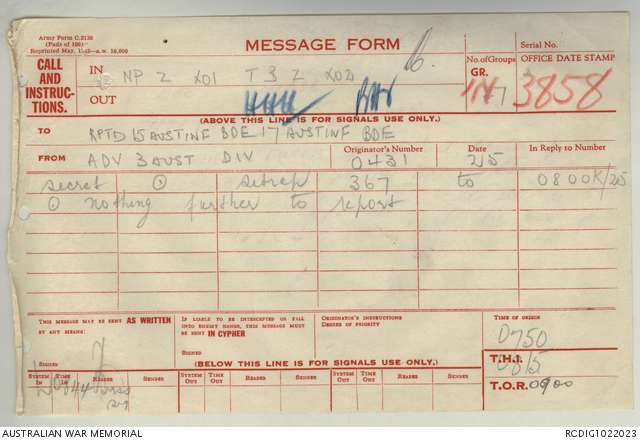 Army Form C.2136
(Pads of 100)
MESSAGE FORM
Serial No.
CALL AND INSTRUCTIONS.
IN NP Z X01 T 3 Z X02
No. of Groups GR.
OFFICE DATE STAMP
OUT
IN 7 3858
(ABOVE THIS LINE IS FOR SIGNALS USE ONLY.)
TO RPTD 15 AUST INF BDE 17 AUST INF BDE
FROM ADV 3 AUST DIV
Originator's Number 0431
Date 2/5
In Reply to Number
secret ⊙ sitrep 367 to 0800K/25
⊙ nothing further to report
THIS MESSAGE MAY BE SENT AS WRITTEN BY ANY MEANS:
IF LIABLE TO BE INTERCEPTED OR FALL INTO ENEMY HANDS, THIS MESSAGE MUST BE SENT IN CYPHER
ORIGINATOR'S INSTRUCTIONS DEGREE OF PRIORITY
TIME OF ORIGIN
0750
SIGNED
SIGNED
(BELOW THIS LINE IS FOR SIGNALS USE ONLY.)
T.H.I. 0815
SYSTEM IN TIME IN READER SENDER SYSTEM OUT TIME OUT READER SENDER SYSTEM OUT TIME OUT READER SENDER
T.O.R. 0900
AUSTRALIAN WAR MEMORIAL
RCDIG1022023